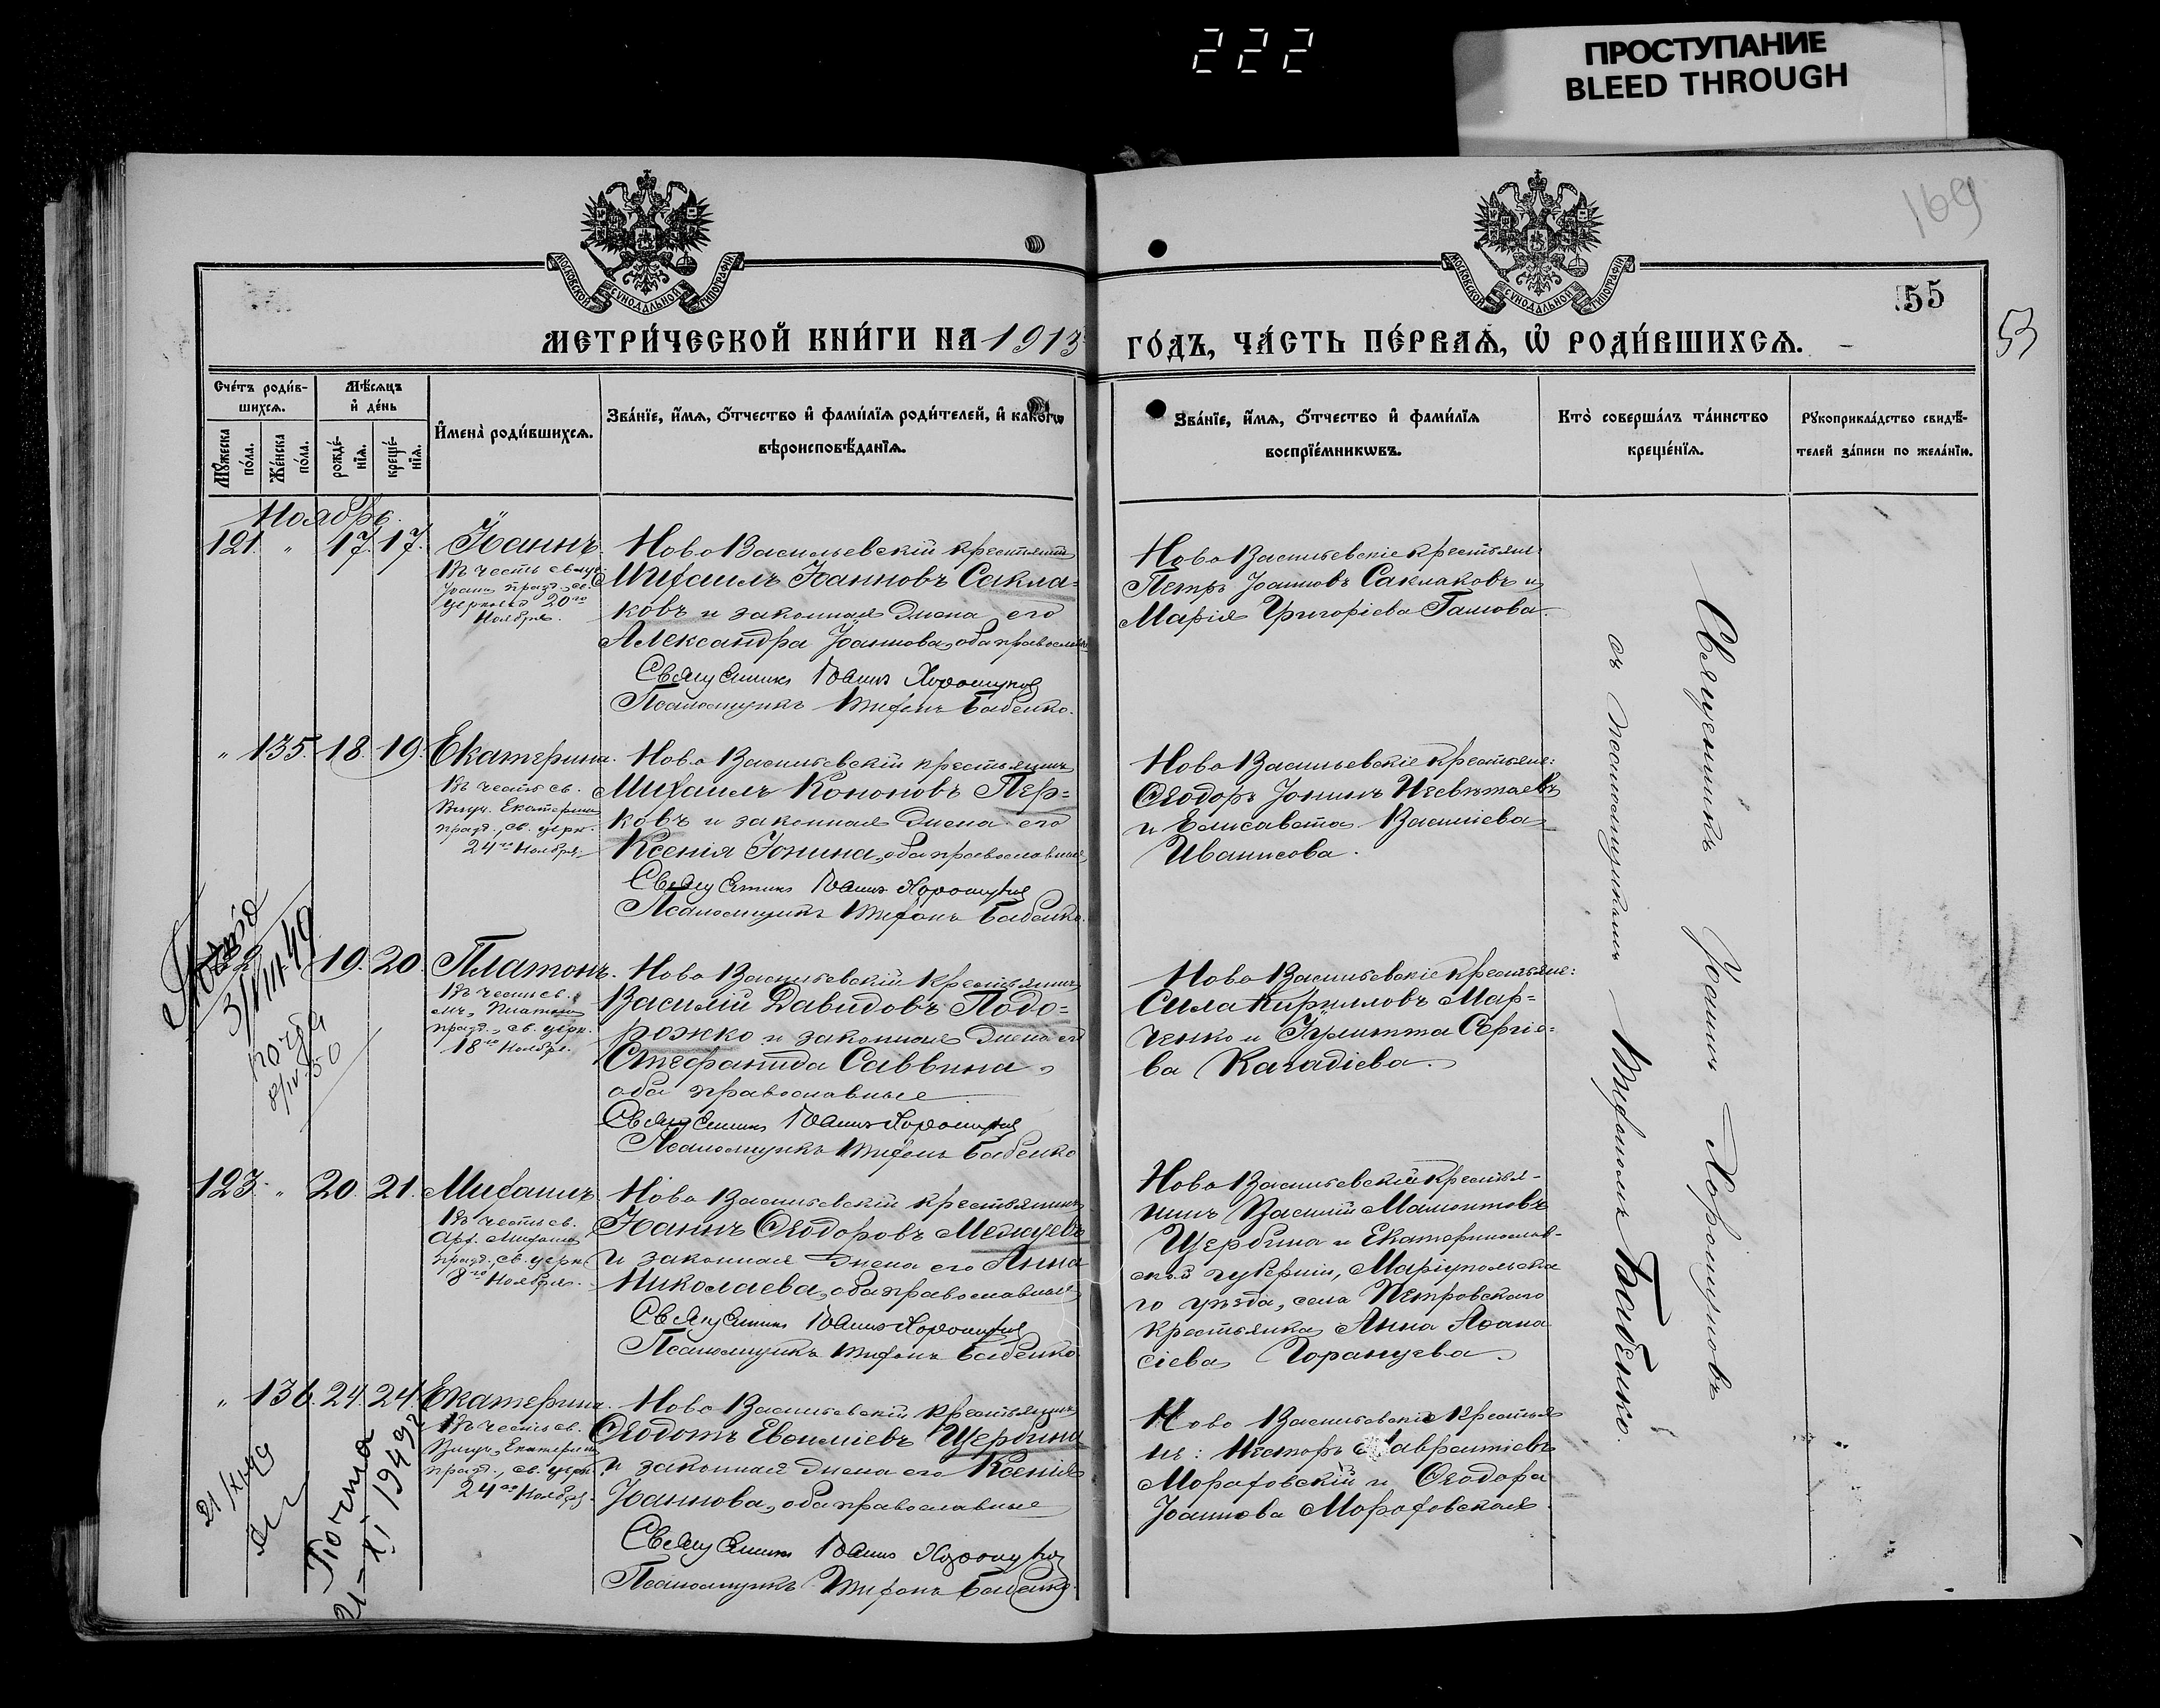 222
ПРОСТУПАНИЕ
BLEED THROUGH
169
МОСКОВСКОЙ СѴНОДАЛЬНОЙ ТИПОГРАФІИ
МОСКОВСКОЙ СѴНОДАЛЬНОЙ ТИПОГРАФІИ
55
53
МЕТРИ́ЧЕСКОЙ КНИ́ГИ НА 1913
ГО́ДЪ, ЧА́СТЬ ПЕ́РВАѦ, Ѡ҆ РОДИ́ВШИХСѦ.
Сче́тъ роди́в-
шихсѧ.
Мꙋ́жеска
по́ла.
Же́нска
по́ла.
Мѣ́сѧцъ
и҆ де́нь
рожде́-
нїѧ.
креще́-
нїѧ.
И҆мена̀ роди́вшихсѧ.
Зва́нїе, и҆́мѧ, ѻ҆́тчество и҆ фами́лїѧ роди́телей, и҆ како́гѡ
вѣроисповѣ́данїѧ.
Зва́нїе, и҆́мѧ, ѻ҆́тчество и҆ фами́лїѧ
воспрїе́мникѡвъ.
Кто̀ соверша́лъ та́инство
креще́нїѧ.
Рꙋкоприкла́дство свидѣ́-
телей за́писи по жела́нїю.
Ноябрь.
121. " 17. 17. Іоаннъ.
Въ честь св. муч.
празд. св.
церковью 20го
Ноября.
Ново Васильевскій крестьянинъ
Михаилъ Іоанновъ Сакла=
ковъ и законная жена его
Александра Іоаннова, оба православные
Священникъ Іоаннъ Хорошуновъ
Псаломщикъ Трифонъ Бабенко.
Ново Васильевскіе крестьяне:
Петръ Іоанновъ Саклаковъ и
Марія Григоріева Гашова.
" 135. 18. 19. Екатерина.
Въ честь св.
Вмуч. Екатерины
празд., св. церк.
24го Ноября
Ново Васильевскій крестьянинъ
Михаилъ Кононовъ Пер=
ковъ и законная жена его
Ксенія Іонина, оба православные
Священникъ Іоаннъ Хорошуновъ
Псаломщикъ Трифонъ Бабенко.
Ново Васильевскіе крестьяне:
Ѳеодоръ Іонинъ Несвѣтаевъ
и Елисавета Василіева
Иванисова.
3/VIII 49
почта
8/IV-50
19. 20. Платонъ.
Въ честь св.
мч. Платона
празд., св. церк.
18го Ноября.
Ново Васильевскій крестьянинъ
Василій Давидовъ Подо=
рожко и законная жена его
Стефанида Саввина,
оба православные
Священникъ Іоаннъ Хорошуновъ
Псаломщикъ Трифонъ Бабенко
Ново Васильевскіе крестьяне:
Сила Кирилловъ Мар=
ченко и Іулитта Сергіе=
ва Кагадіева.
123. " 20. 21. Михаилъ
Въ честь св.
Арх. Михаила
празд., св. церк.
8го Ноября.
Ново Васильевскій крестьянинъ
Іоаннъ Ѳеодоровъ Межуевъ
и законная жена его Анна
Николаева, оба православные
Священникъ Іоаннъ Хорошуновъ
Псаломщикъ Трифонъ Бабенко
Ново Васильевскій крестья-
нинъ Василій Мамонтовъ
Щербина и Екатеринослав-
ской губерніи, Маріупольска
го уѣзда, села Петровскаго
крестьянка Анна Аѳана
сіева Горанцева.
" 136. 24. 24. Екатерина.
Въ честь св.
Вмуч. Екатерины
празд., св. церк.
24го Ноября.
Ново Васильевскій крестьянинъ
Ѳеодотъ Евѳиміевъ Щербина
и законная жена его Ксенія
Іоаннова, оба православные
Священникъ Іоаннъ Хорошуновъ
Псаломщикъ Трифонъ Бабенко.
Ново Васильевскіе крестья
не: Несторъ Лаврентіевъ
Мораховскій и Ѳеодора
Іоаннова Мораховская.
21/XI 49
Почта
21-XI 1949г
Священникъ Іоаннъ Хорошуновъ
съ псаломщикомъ Трифономъ Бабенко.